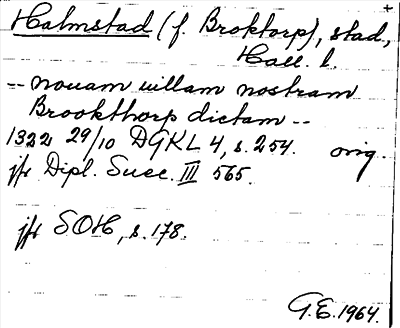 Halmstad (f. Broktorp), stad,
Hall. l.
-- nouam uillam nostram
Brookthorp dictam --
1322 29/10 DGKL 4, s. 254. orig.
jfr Dipl. Suec. III 565.
jfr SOH, s. 178.
G.E. 1964.